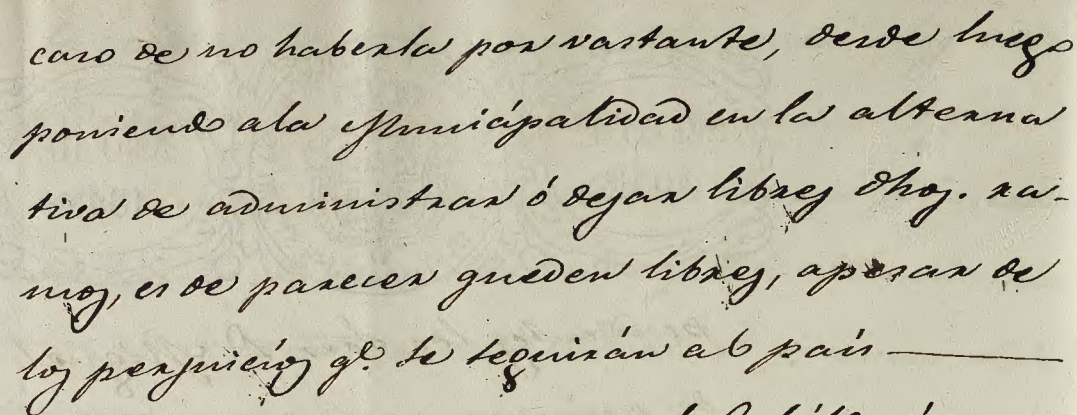 caso de no haberla por vastante, desde luego
poniendo ala Municipalidad en la alterna
tiva de administrar ó dejar libres dhos. ra-
mos, es de parecer queden libres, apesar de
los perjuicios qe. se seguirán al país